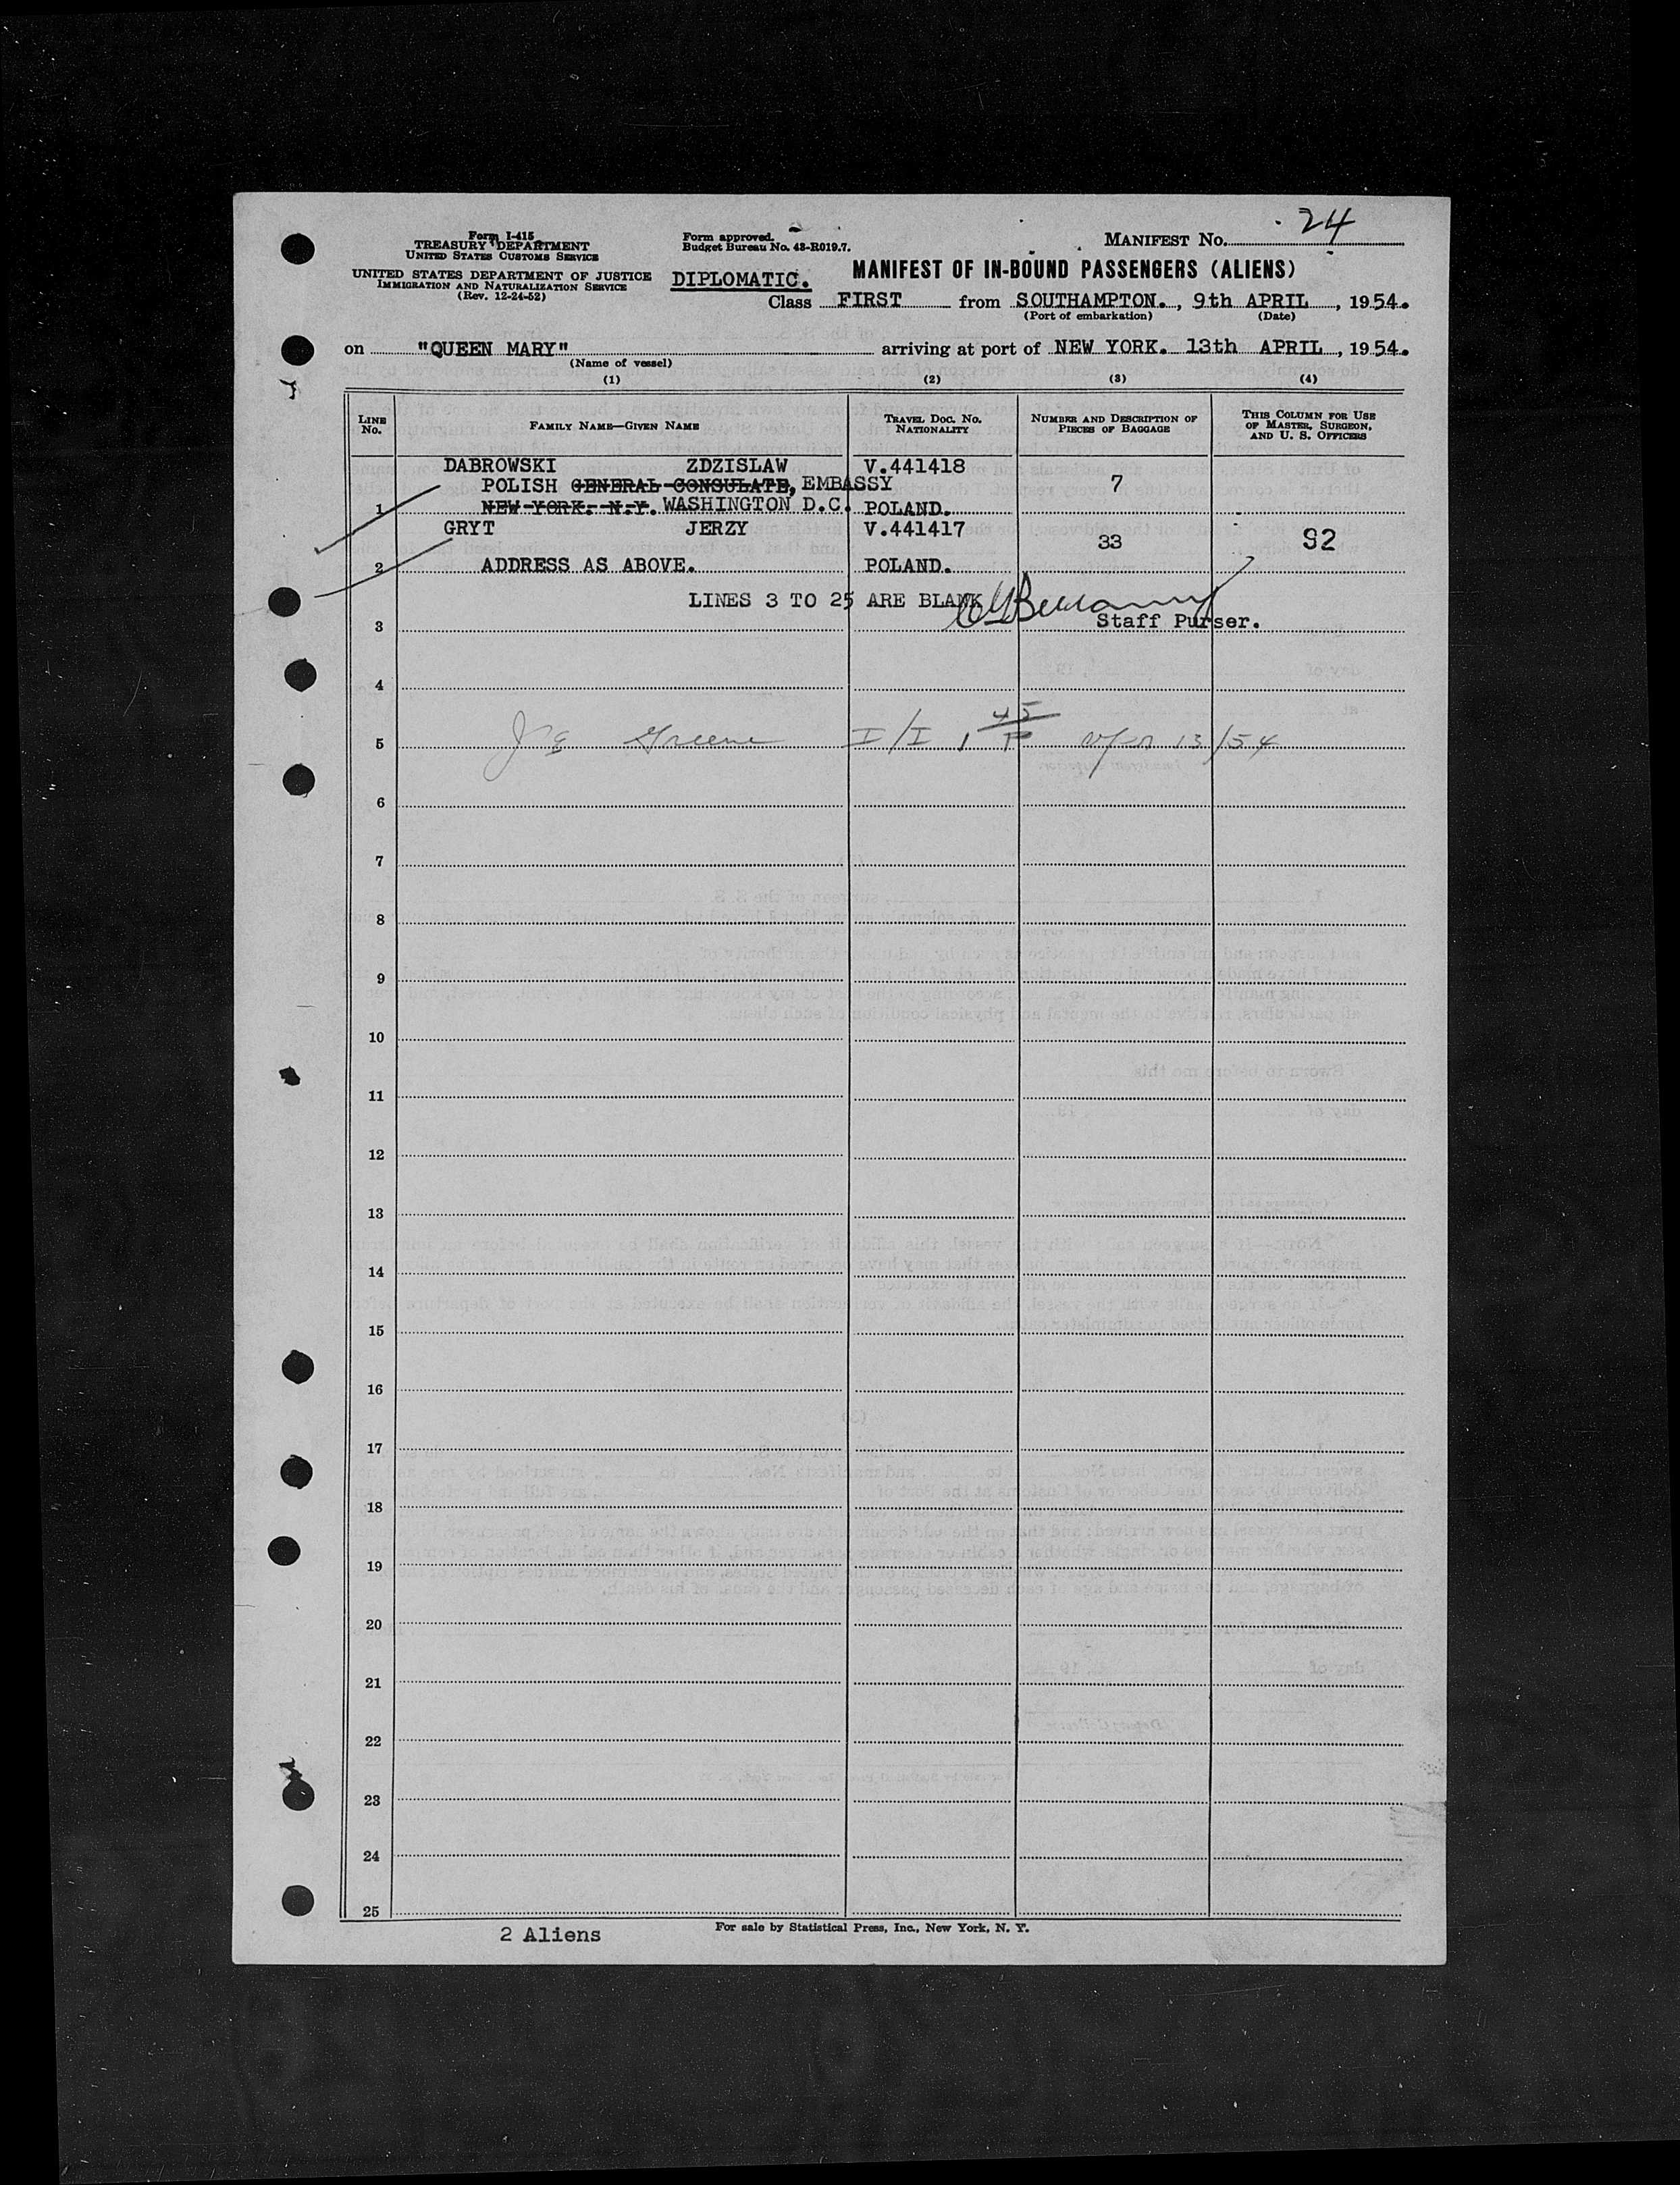 24
Form I-415
TREASURY DEPARTMENT
UNITED STATES CUSTOMS SERVICE
UNITED STATES DEPARTMENT OF JUSTICE
IMMIGRATION AND NATURALIZATION SERVICE
(Rev. 12-24-52)
Form approved.
Budget Bureau No. 43-R019.7.
MANIFEST NO.
DIPLOMATIC.
MANIFEST OF IN-BOUND PASSENGERS (ALIENS)
Class FIRST from SOUTHAMPTON., 9th APRIL, 1954.
(Port of embarkation) (Date)
on "QUEEN MARY" arriving at port of NEW YORK. 13th APRIL, 1954.
(Name of vessel)
(1) (2) (3) (4)
LINE NO. FAMILY NAME—GIVEN NAME TRAVEL DOC. NO. NATIONALITY NUMBER AND DESCRIPTION OF PIECES OF BAGGAGE THIS COLUMN FOR USE OF MASTER, SURGEON, AND U. S. OFFICERS
DABROWSKI ZDZISLAW V.441418
POLISH GENERAL CONSULATE, EMBASSY 7
1 NEW YORK. N.Y. WASHINGTON D.C. POLAND.
GRYT JERZY V.441417
33 92
2 ADDRESS AS ABOVE. POLAND.
LINES 3 TO 25 ARE BLANK
3 Staff Purser.
4
5 J E Greene I/I 13/54
6
7
8
9
10
11
12
13
14
15
16
17
18
19
20
21
22
23
24
25
2 Aliens
For sale by Statistical Press, Inc., New York, N. Y.